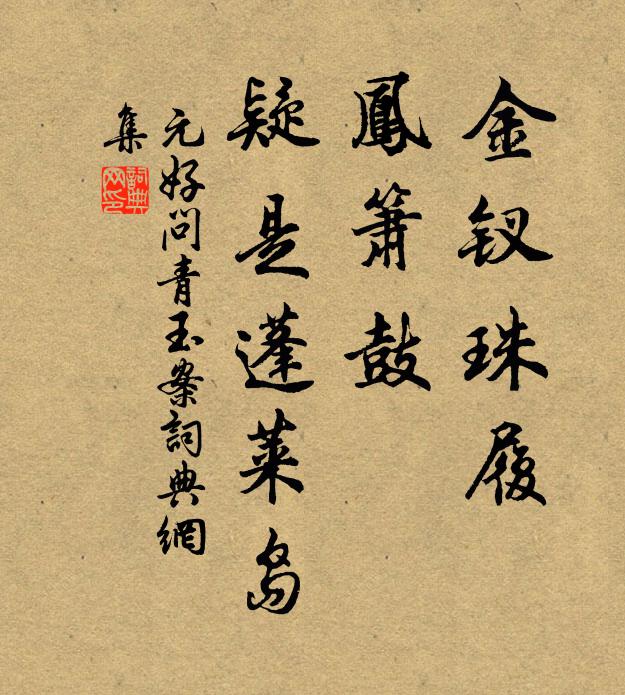 金钗珠履
鳳簫鼓
疑是蓬莱岛
元好问青玉案詞典網
集
詞典网印